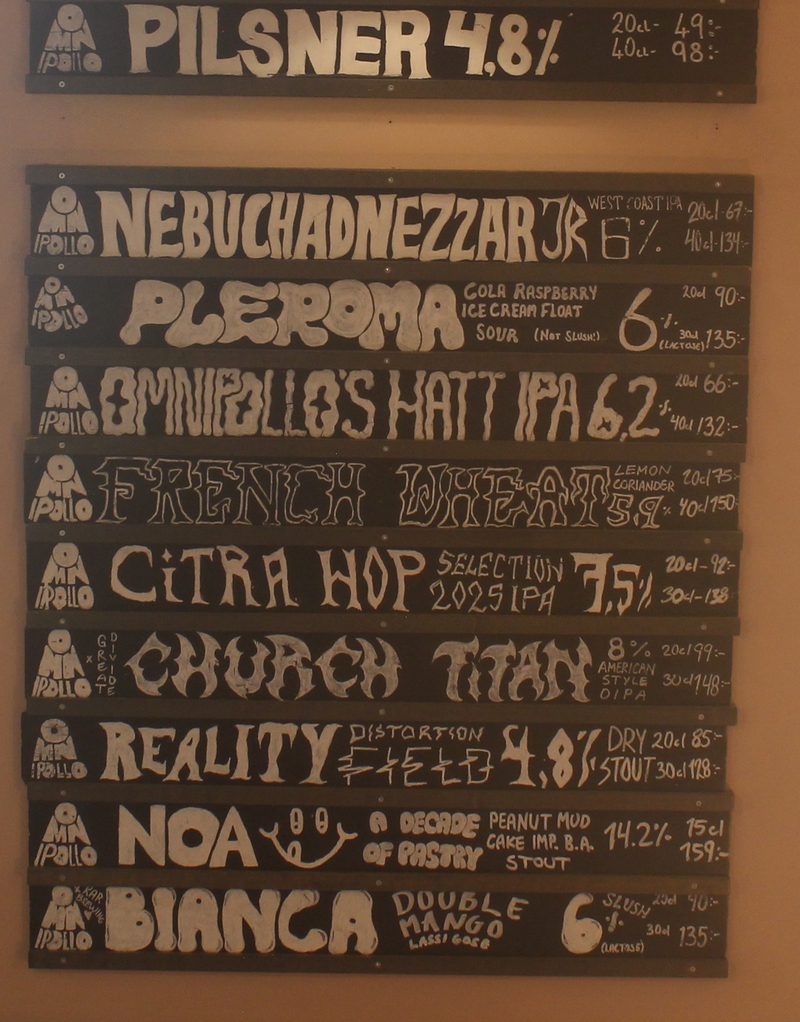 OMNIPOLLO PILSNER 4,8% 20cl- 49:-
40cl- 98:-
OMNIPOLLO NEBUCHADNEZZAR JR WEST COAST IPA 6% 20cl-67:-
40cl-134:-
OMNIPOLLO PLEROMA COLA RASPBERRY 6% 20cl 90:-
ICE CREAM FLOAT
SOUR (NOT SLUSH!) (LACTOSE) 30cl 135:-
OMNIPOLLO OMNIPOLLO'S HATT IPA 6,2% 20cl 66:-
40cl 132:-
OMNIPOLLO FRENCH WHEAT LEMON 20cl 75:-
CORIANDER
5,9% 40cl 150:-
OMNIPOLLO CiTRA HOP SELECTION 7,5% 20cl-92:-
2025 IPA 30cl-138:-
OMNIPOLLO x GREAT DIVIDE CHURCH TITAN 8% 20cl 99:-
AMERICAN
STYLE 30cl 148:-
DIPA
OMNIPOLLO REALITY DISTORTION 4,8% DRY 20cl 85:-
FIELD STOUT 30cl 128:-
OMNIPOLLO NOA A DECADE PEANUT MUD 14.2% 15cl
OF PASTRY CAKE IMP. B.A. 159:-
STOUT
OMNIPOLLO x KAR BREWING BIANCA DOUBLE 6% SLUSH 20cl 90:-
MANGO 30cl 135:-
LASSI GOSE (LACTOSE)